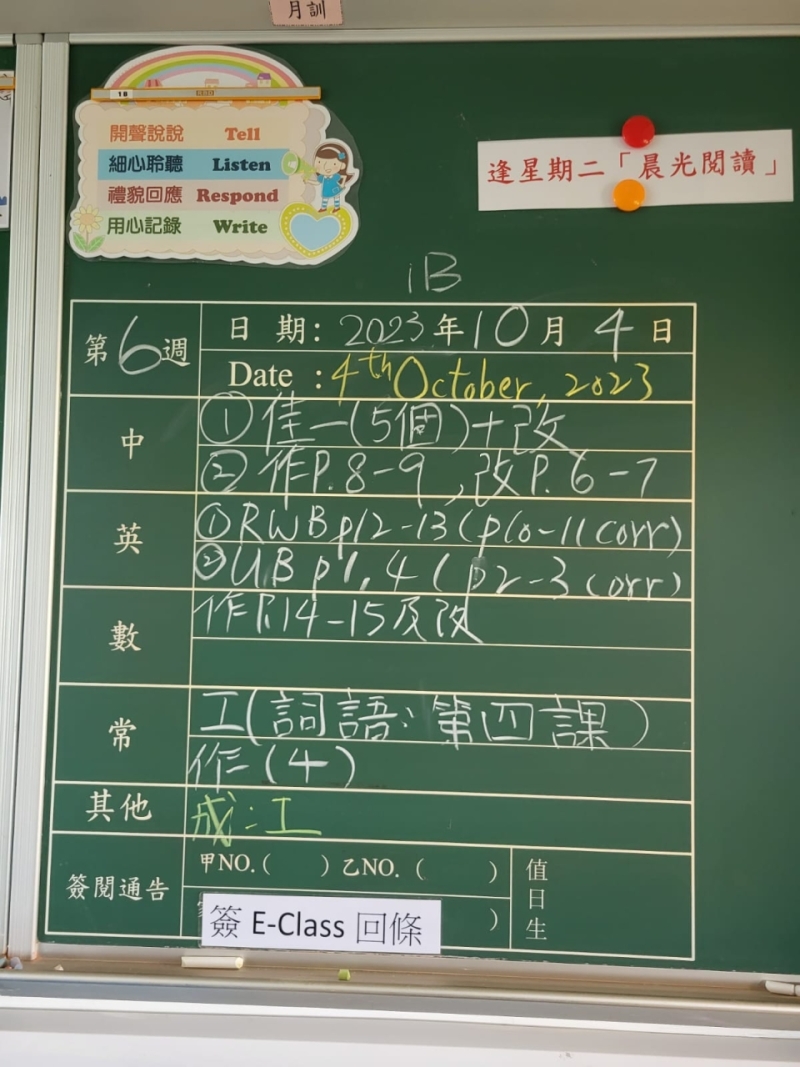 月訓
開聲說說 Tell
細心聆聽 Listen
禮貌回應 Respond
用心記錄 Write
逢星期二「晨光閱讀」
1B
第6週
日期：2023年10月4日
Date : 4th October, 2023
中
①佳一(5個)+改
②作P.8-9,改P.6-7
英
①RWB p12-13(p10-11 corr)
②UB p1,4(p2-3 corr)
數
作P.14-15及改
常
工(詞語:第四課)
作(4)
其他
成:工
簽閱通告
甲NO.( )乙NO.( )
簽 E-Class 回條
)
值日生